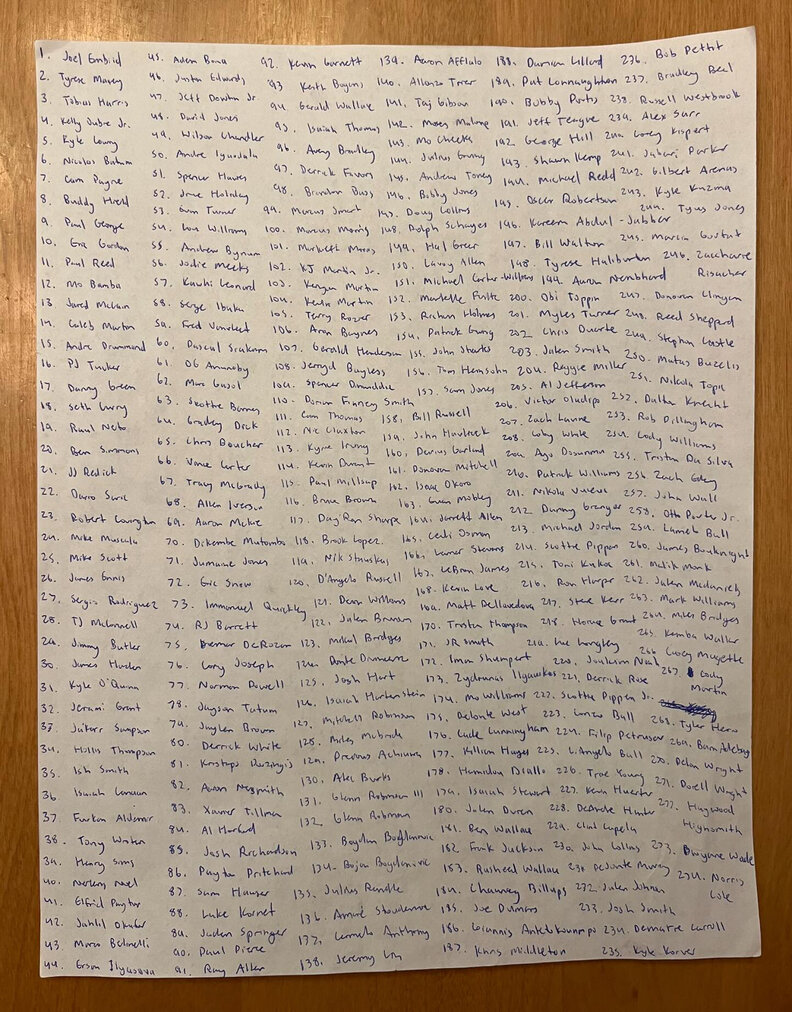 1. Joel Embiid
2. Tyrese Maxey
3. Tobias Harris
4. Kelly Oubre Jr.
5. Kyle Lowry
6. Nicolas Batum
7. Cam Payne
8. Buddy Hield
9. Paul George
10. Eric Gordon
11. Paul Reed
12. Mo Bamba
13. Jared McCain
14. Caleb Martin
15. Andre Drummond
16. PJ Tucker
17. Danny Green
18. Seth Curry
19. Raul Neto
20. Ben Simmons
21. JJ Redick
22. Dario Saric
23. Robert Covington
24. Mike Muscala
25. Mike Scott
26. James Ennis
27. Sergio Rodriguez
28. TJ McConnell
29. Jimmy Butler
30. James Harden
31. Kyle O'Quinn
32. Jerami Grant
33. Jakarr Sampson
34. Hollis Thompson
35. Ish Smith
36. Isaiah Canaan
37. Furkan Aldemir
38. Tony Wroten
39. Henry Sims
40. Nerlens Noel
41. Elfrid Payton
42. Jahlil Okafor
43. Marco Belinelli
44. Ersan Ilyasova
45. Adem Bona
46. Justin Edwards
47. Jeff Dowtin Jr.
48. David Jones
49. Wilson Chandler
50. Andre Iguodala
51. Spencer Hawes
52. Jrue Holiday
53. Evan Turner
54. Lou Williams
55. Andrew Bynum
56. Jodie Meeks
57. Kawhi Leonard
58. Serge Ibaka
59. Fred Vanvleet
60. Pascal Siakam
61. OG Anunoby
62. Marc Gasol
63. Scottie Barnes
64. Gradey Dick
65. Chris Boucher
66. Vince Carter
67. Tracy McGrady
68. Allen Iverson
69. Aaron McKie
70. Dikembe Mutombo
71. Jumaine Jones
72. Eric Snow
73. Immanuel Quickley
74. RJ Barrett
75. Demar DeRozan
76. Cory Joseph
77. Norman Powell
78. Jayson Tatum
79. Jaylen Brown
80. Derrick White
81. Kristaps Porzingis
82. Aaron Nesmith
83. Xavier Tillman
84. Al Horford
85. Josh Richardson
86. Payton Pritchard
87. Sam Hauser
88. Luke Kornet
89. Jaden Springer
90. Paul Pierce
91. Ray Allen
92. Kevin Garnett
93. Keith Bogans
94. Gerald Wallace
95. Isaiah Thomas
96. Avery Bradley
97. Derrick Favors
98. Brandon Bass
99. Marcus Smart
100. Marcus Morris
101. Markieff Morris
102. KJ Martin Jr.
103. Kenyon Martin
104. Kevin Martin
105. Terry Rozier
106. Aron Baynes
107. Gerald Henderson
108. Jerryd Bayless
109. Spencer Dinwiddie
110. Dorian Finney Smith
111. Cam Thomas
112. Nic Claxton
113. Kyrie Irving
114. Kevin Durant
115. Paul Millsap
116. Bruce Brown
117. Day'Ron Sharpe
118. Brook Lopez
119. Nik Stauskas
120. D'Angelo Russell
121. Deron Williams
122. Jalen Brunson
123. Mikal Bridges
124. Donte Divincenzo
125. Josh Hart
126. Isaiah Hartenstein
127. Mitchell Robinson
128. Miles McBride
129. Precious Achiuwa
130. Alec Burks
131. Glenn Robinson III
132. Glenn Robinson
133. Bogdan Bogdanovic
134. Bojan Bogdanovic
135. Julius Randle
136. Amaré Stoudemire
137. Carmelo Anthony
138. Jeremy Lin
139. Aaron Afflalo
140. Allonzo Trier
141. Taj Gibson
142. Moses Malone
143. Mo Cheeks
144. Julius Erving
145. Andrew Toney
146. Bobby Jones
147. Doug Collins
148. Dolph Schayes
149. Hal Greer
150. Lavoy Allen
151. Michael Carter-Williams
152. Markelle Fultz
153. Richaun Holmes
154. Patrick Ewing
155. John Starks
156. Tom Heinsohn
157. Sam Jones
158. Bill Russell
159. John Havlicek
160. Darius Garland
161. Donovan Mitchell
162. Isaac Okoro
163. Evan Mobley
164. Jarrett Allen
165. Cedi Osman
166. Lamar Stevens
167. LeBron James
168. Kevin Love
169. Matt Dellavedova
170. Tristan Thompson
171. JR Smith
172. Iman Shumpert
173. Zydrunas Ilgauskas
174. Mo Williams
175. Delonte West
176. Cade Cunningham
177. Killian Hayes
178. Hamidou Diallo
179. Isaiah Stewart
180. Jalen Duren
181. Ben Wallace
182. Frank Jackson
183. Rasheed Wallace
184. Chauncey Billups
185. Joe Dumars
186. Giannis Antetokounmpo
187. Khris Middleton
188. Damian Lillard
189. Pat Connaughton
190. Bobby Portis
191. Jeff Teague
192. George Hill
193. Shawn Kemp
194. Michael Redd
195. Oscar Robertson
196. Kareem Abdul-Jabbar
197. Bill Walton
198. Tyrese Haliburton
199. Aaron Nembhard
200. Obi Toppin
201. Myles Turner
202. Chris Duarte
203. Jalen Smith
204. Reggie Miller
205. Al Jefferson
206. Victor Oladipo
207. Zach Lavine
208. Coby White
209. Ayo Dosunmu
210. Patrick Williams
211. Nikola Vucevic
212. Danny Granger
213. Michael Jordan
214. Scottie Pippen
215. Toni Kukoc
216. Ron Harper
217. Steve Kerr
218. Horace Grant
219. Luc Longley
220. Joakim Noah
221. Derrick Rose
222. Scottie Pippen Jr.
223. Lonzo Ball
224. Filip Petrusev
225. LiAngelo Ball
226. Trae Young
227. Kevin Huerter
228. DeAndre Hunter
229. Clint Capela
230. John Collins
231. DeJonte Murray
232. Jalen Johnson
233. Josh Smith
234. Demarre Carroll
235. Kyle Korver
236. Bob Pettit
237. Bradley Beal
238. Russell Westbrook
239. Alex Sarr
240. Corey Kispert
241. Jabari Parker
242. Gilbert Arenas
243. Kyle Kuzma
244. Tyus Jones
245. Marcin Gortat
246. Zaccharie
Risacher
247. Donovan Clingan
248. Reed Sheppard
249. Stephon Castle
250. Matas Buzelis
251. Nikola Topic
252. Dalton Knecht
253. Rob Dillingham
254. Cody Williams
255. Tristan Da Silva
256. Zach Edey
257. John Wall
258. Otto Porter Jr.
259. Lamelo Ball
260. James Bouknight
261. Malik Monk
262. Jalen McDaniels
263. Mark Williams
264. Miles Bridges
265. Kemba Walker
266. Corey Magette
267. Cody
Martin
268. Tyler Herro
269. Bam Adebayo
270. Delon Wright
271. Dorell Wright
272. Haywood
Highsmith
273. Dwyane Wade
274. Norris
Cole